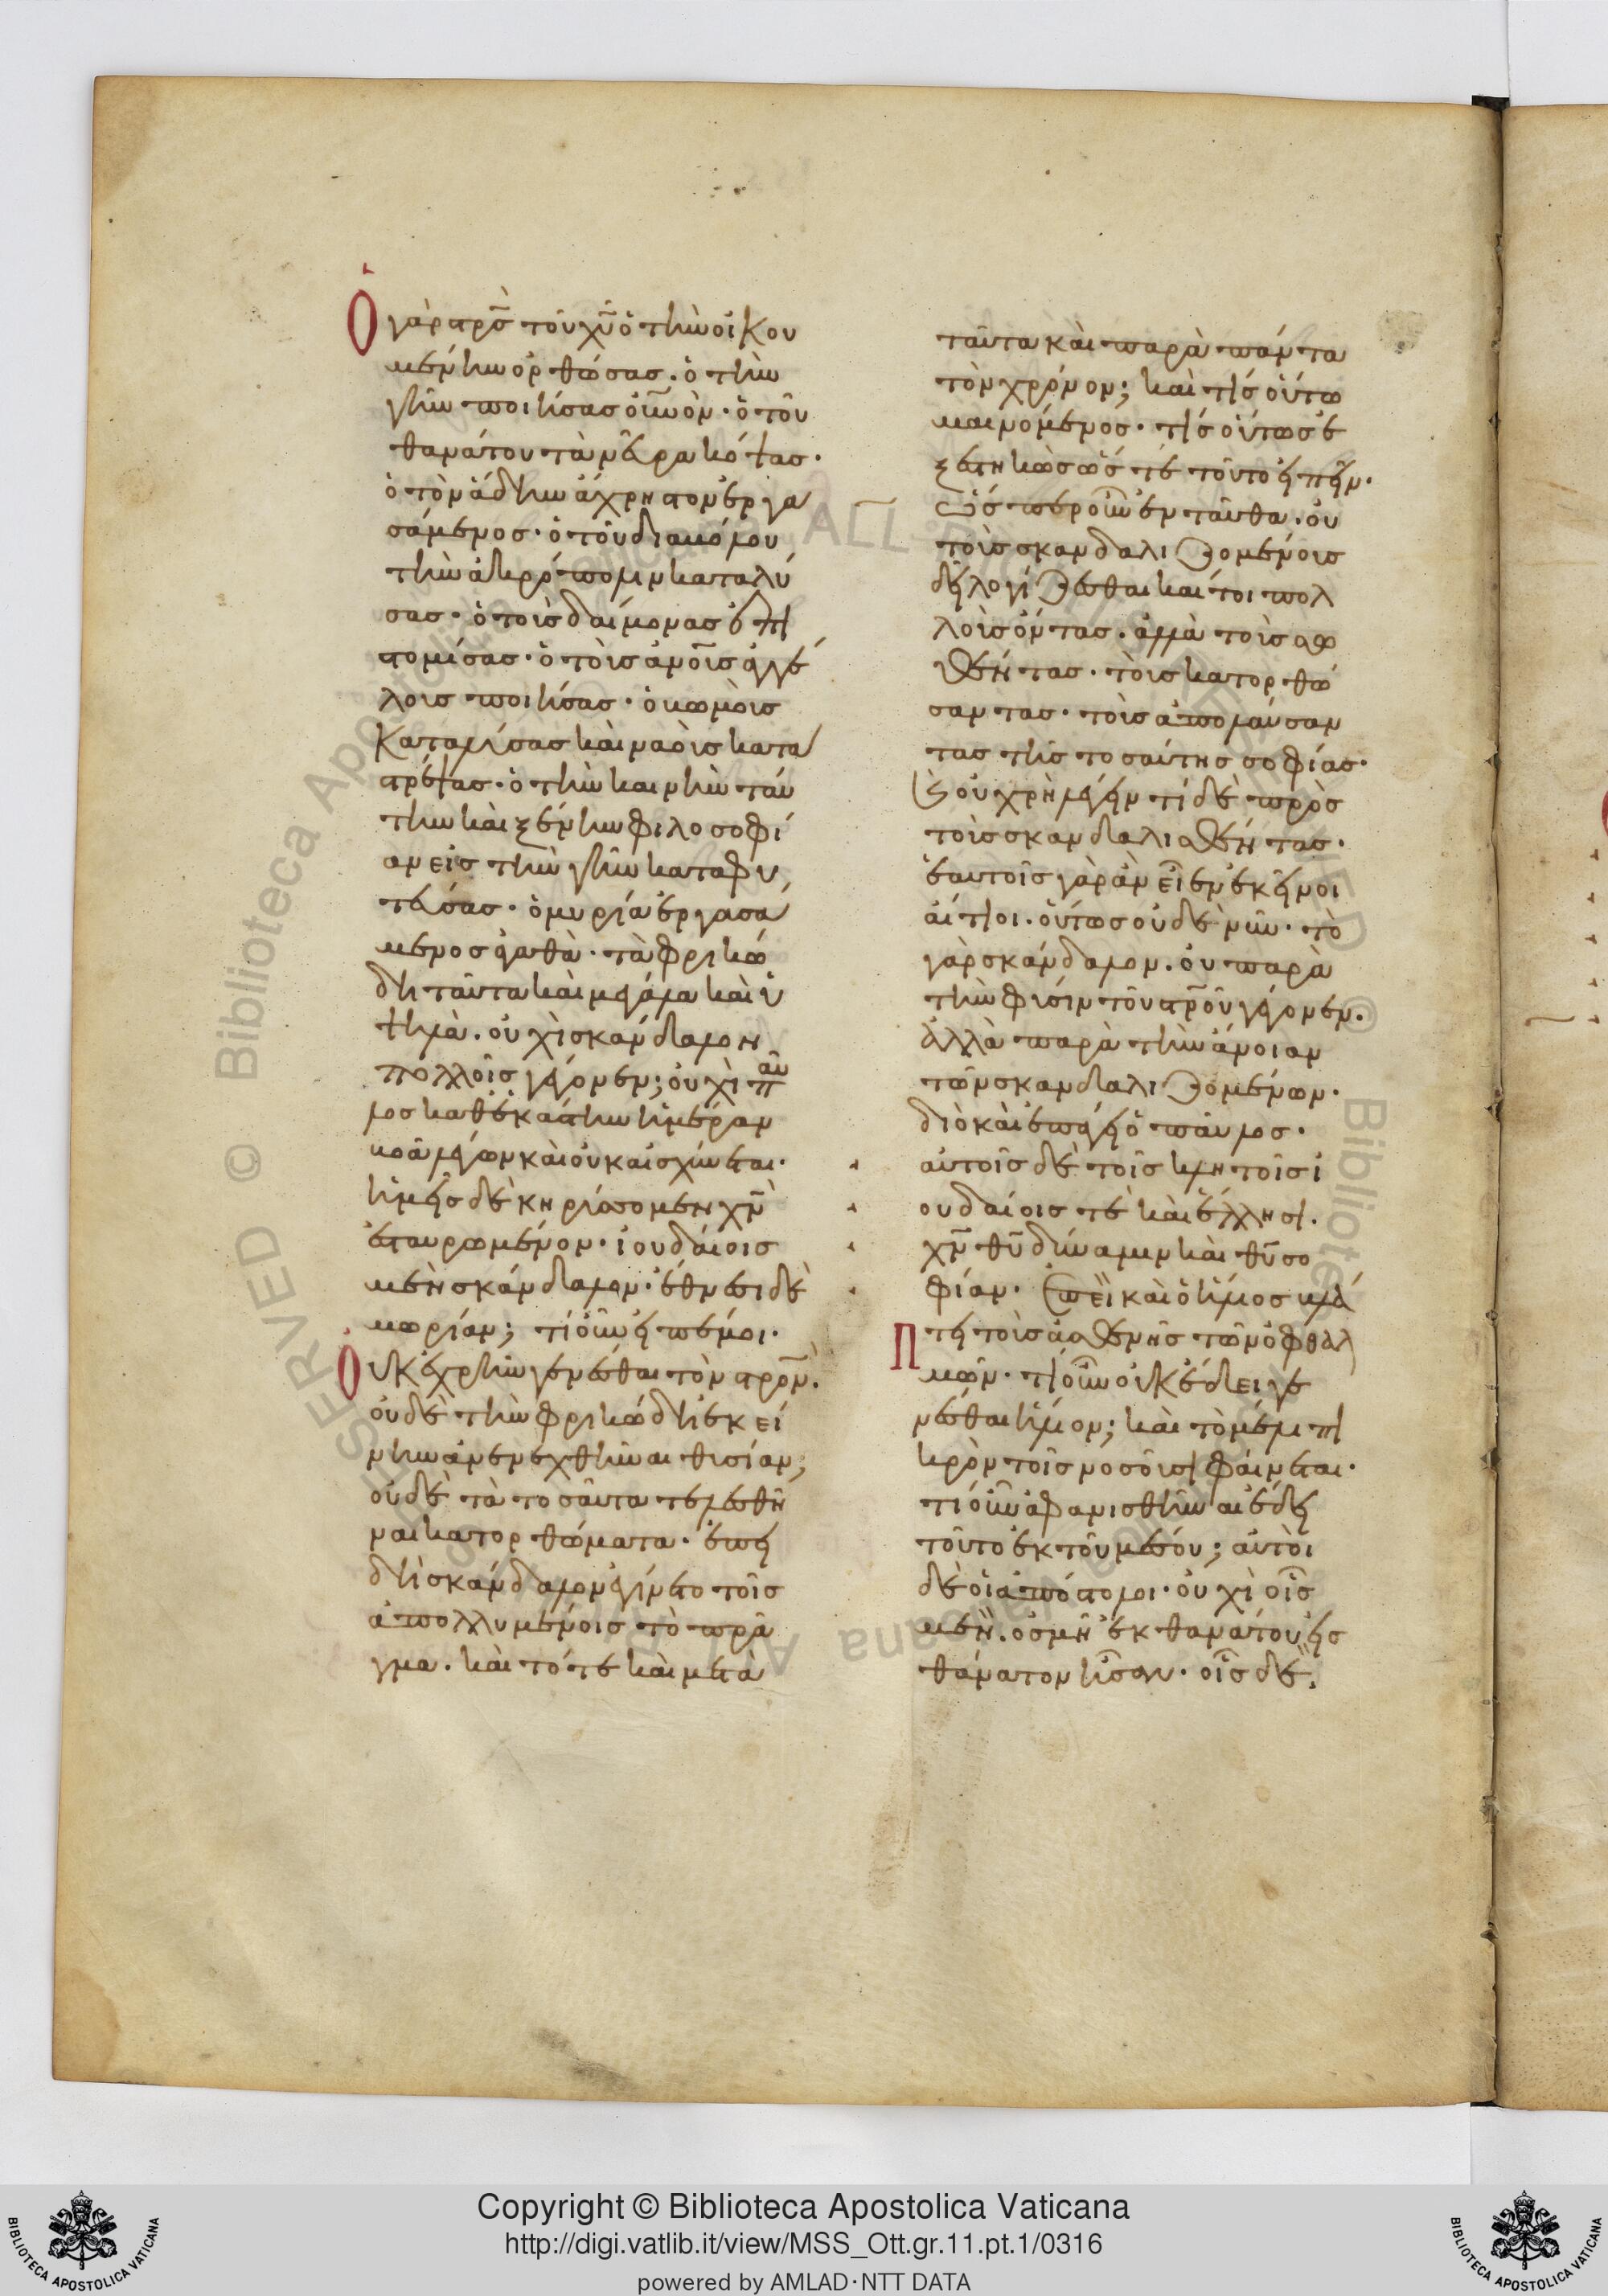 Ὁ γὰρ στρ̅ς τοῦ χυ̅ ὁ τὴν οἰκου
μένην ὀρθώσας. ὁ τὴν
γῆν ποιήσας οὐνὸν· ὁ τοῦ
θανάτου τὰ νεῦρα κόψας·
ὁ τὸν ἅδην ἄχρηστον ἐργα
σάμενος· ὁ τοῦ διαβόλου
τὴν ἀκρόπολιν καταλύ
σας· ὁ τοὺς δαίμονας ἐπι
στομίσας· ὁ τοὺς ἀνο̅υς ἀγγέ
λους ποιήσας· ὁ βωμοὺς
καταλύσας καὶ ναοὺς κατα
στρέψας· ὁ τὴν καινὴν ταύ
την καὶ ξένην φιλοσοφί
αν εἰς τὴν γῆν καταφυ
τεύσας· ὁ μυρία ἐργασά
μενος ἀγαθὰ· τὰ φρικώ
δη ταῦτα καὶ μεγάλα καὶ ὑ
ψηλὰ. οὐχὶ σκάνδαλον
πολλοῖς γέγονεν; οὐχὶ παῦ
λος καθ ἑκάστην ἡμέραν
βοᾶ λέγων καὶ οὐκ αἰσχύνεται·
ἡμεῖς δὲ κηρύσσομεν χν̅
ἐσταυρωμένον· ἰουδαίοις
μὲν σκάνδαλον· ἔθνεσι δὲ
μωρίαν; τί οὖν εἰπέ μοι·
Οὐκ ἐχρῆν γενέσθαι τὸν στρο̅ν.
οὐδὲ τὴν φρικώδη ἐκεί
νην ἀνενεχθῆναι θυσίαν;
οὐδὲ τὰ τοσαῦτα τελεσθῆ
ναι κατορθώματα· ἐπει
δὴ σκάνδαλον ἐγίνετο τοῖς
ἀπολλυμένοις τὸ πρᾶ
γμα. καὶ τότε καὶ μετὰ
ταῦτα καὶ παρὰ πάντα
τὸν χρόνον; καὶ τίς οὕτω
μαινόμενος· τίς οὕτως ἐ
ξεστηκὼς ὥς τε τοῦτο εἰπεῖν·
Ὥς περ οὖν ἐνταῦθα. οὐ
τοὺς σκανδαλιζομένους
δεῖ λογίζεσθαι καί τοι πολ
λοὺς ὄντας. ἀλλὰ τοὺς σω
θέντας· τοὺς κατορθώ
σαντας· τοὺς ἀπολαύσαν
τας τῆς τοσαύτης σοφίας·
καὶ οὐ χρὴ λέγειν τί δὲ πρὸς
τοὺς σκανδαλισθέντας·
ἑαυτοῖς γὰρ ἂν εἶεν ἐκεῖνοι
αἴτιοι. οὕτως οὐδὲ νῦν· τὸ
γὰρ σκάνδαλον. οὐ παρὰ
τὴν φύσιν τοῦ στρο̅υ γέγονεν.
ἀλλὰ παρὰ τὴν ἄνοιαν
τῶν σκανδαλιζομένων·
διὸ καὶ ἐπάγει ὁ παῦλος·
αὐτοῖς δὲ τοῖς κλητοῖς ἰ
ουδαίοις τὲ καὶ ἕλλησι.
χν̅ θυ̅ δύναμιν καὶ θυ̅ σο
φίαν· Ἐπεὶ καὶ ὁ ἥλιος βλά
Πτει τοὺς ἀσθενεῖς τῶν ὀφθαλ
μῶν· τί οὖν οὐκ ἔδει γε
νέσθαι ἥλιον; καὶ τὸ μέλι πι
κρὸν τοῖς νοσοῦσι φαίνεται·
τί οὖν ἀφανισθῆναι ἔδει
τοῦτο ἐκ τοῦ μέσου; αὐτοὶ
δὲ οἱ ἀπόστολοι· οὐχὶ οἷς
μὲν. ὀσμὴ ἐκ θανάτου εἰς
θάνατον ἦσαν· οἷς δὲ.
Copyright © Biblioteca Apostolica Vaticana
http://digi.vatlib.it/view/MSS_Ott.gr.11.pt.1/0316
powered by AMLAD·NTT DATA
BIBLIOTECA APOSTOLICA VATICANA
BIBLIOTECA APOSTOLICA VATICANA